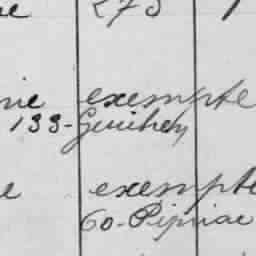 273
exempte
133-Guichen
exempte
60-Pipriac